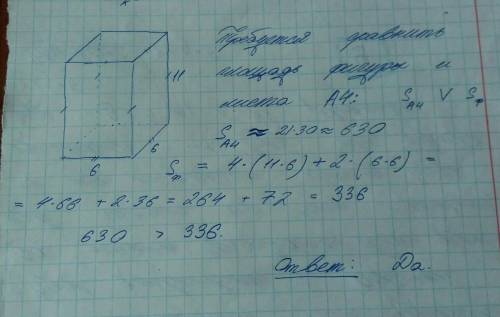 Требуется сравнить
площадь фигуры и
листа А4: S_A4 V S_ф
S_A4 ≈ 21·30 ≈ 630
11
6
6
S_ф = 4·(11·6) + 2·(6·6) =
= 4·66 + 2·36 = 264 + 72 = 336
630 > 336.
Ответ: Да.